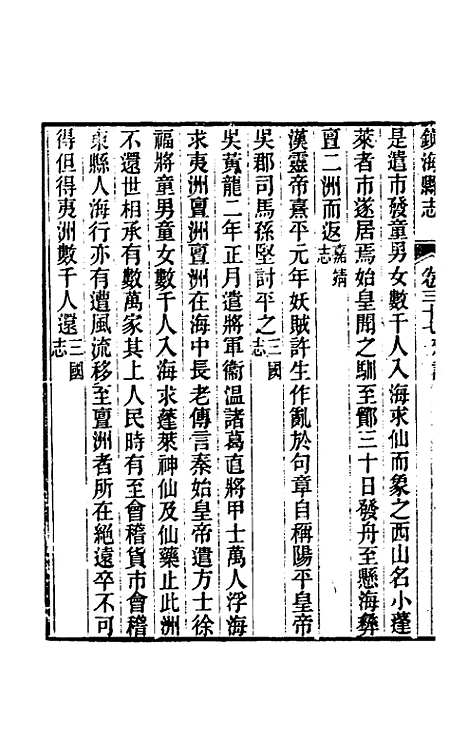 鎮海縣志　卷三十七
是遣市發童男女數千人入海求仙而象之西山名小蓬
萊者市遂居焉始皇聞之馴至鄮三十日發舟至懸海彝
亶二洲而返嘉靖志
漢靈帝熹平元年妖賊許生作亂於句章自稱陽平皇帝
吳郡司馬孫堅討平之三國志
吳黃龍二年正月遣將軍衞溫諸葛直將甲士萬人浮海
求夷洲亶洲亶洲在海中長老傳言秦始皇帝遣方士徐
福將童男童女數千人入海求蓬萊神仙及仙藥止此洲
不還世相承有數萬家其上人民時有至會稽貨市會稽
東縣人海行亦有遭風流移至亶洲者所在絕遠卒不可
得但得夷洲數千人還三國志